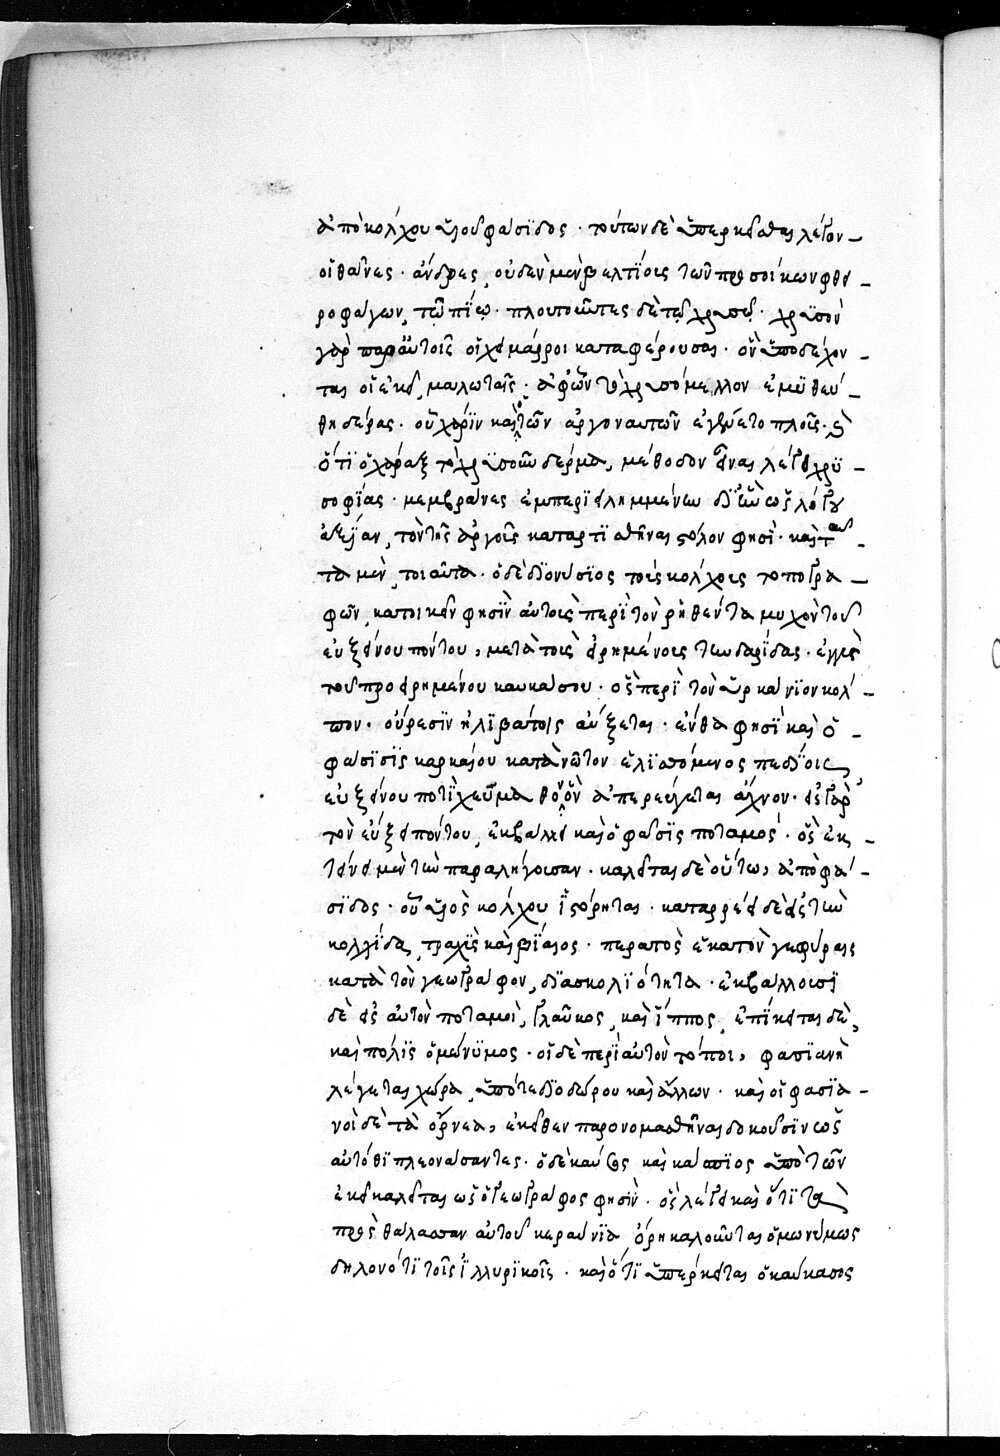 ἀπὸ κόλχου υἱοῦ φάσιδος · τούτων δὲ ὑπερκεῖσθαι λέγον_
οἱ θοᾶνες · ἄνδρες, οὐδὲν μὲν βελτίους τῶν προσοίκων φθει_
ροφάγων, τῷ πίνῳ · πλουτοῦντες δὲ τῷ χρυσῷ · χρυσὸν
γὰρ παρ' αὐτοῖς οἱ χείμαρροι καταφέρουσαι · ὃν ὑποδέχον_
ται οἱ ἐκεῖ, μαλωταῖς · ἀφ' ὧν τὸ χρυσόμαλλον ἐμυθεύ_
θη δέρας · οὗ χάριν καὶ ὁ τῶν ἀργοναυτῶν ἐγένετο πλοῦς · ἢ
ὅτι ὁ χάραξ τὸ χρυσοῦν δέρμα, μέθοδον εἶναι λέγει χρυ_
σοφίας · μεμβράναις ἐμπεριειλημμένων δι' ἣν ὡς λόγου
ἀξίαν, τὸν τῆς ἀργοῦς καταρτισθῆναι στόλον φησί · καὶ ταῦ_
τα μὲν, τοιαῦτα · ὁ δὲ διονύσιος τοὺς κόλχους τοπογρα_
φῶν, κατοικεῖν φησὶν αὐτοὺς περὶ τὸν ῥηθέντα μυχὸν τοῦ
εὐξείνου πόντου, μετὰ τοὺς εἰρημένους τυνδαρίδας · ἐγγὺς
τοῦ προειρημένου καυκάσου · ὃς περὶ τὸν ὑρκανίον κόλ_
πον · οὔρεσιν ἠλιβάτοις αὔξεται · ἔνθα φησὶ καὶ ὁ_
φάσις καρκαίου κατὰ νῶτον ἑλισσόμενος πεδίοιο
εὐξείνου ποτὶ χεῦμα θοὸν ἀπερεύγεται ἄχνον · εἰς γὰρ
τὸν εὔξει πόντου, ἐκβάλλει καὶ ὁ φάσις ποταμός · ὃς ἐκ_
τείνει μὲν τὴν παραλήγουσαν · καλεῖται δὲ οὕτω, ἀπὸ φά_
σιδος · οὗ υἱὸς κόλχου ἱστόρηται · καταρρεῖ δὲ εἰς τὴν
κολχίδα, τραχὺς καὶ βίαιος · περατὸς ἑκατὸν γεφύραις
κατὰ τὸν γεωγράφον, διὰ σκολιότητα · ἐκβάλλουσι
δὲ εἰς αὐτὸν ποταμοὶ, γλαῦκος, καὶ ἵππος, ἐπίκειται δὲ,
καὶ πόλις ὁμώνυμος · οἱ δὲ περὶ αὐτὸν τόποι, φασιανὴ
λέγεται χώρα, ὑπό τε διοδώρου καὶ ἄλλων · καὶ οἱ φασια_
νοὶ δὲ τὰ ὄρνεα, ἐκεῖθεν παρονομασθῆναι δοκοῦσιν ὡς
αὐτόθι πλεονάσαντες · ὁ δὲ καύκασος καὶ κάσπιος ὑπὸ τῶν
ἐκεῖ καλεῖται ὡς ὁ γεωγράφος φησὶν · ὃς λέγει καὶ ὅτι τὰ
πρὸς θάλασσαν αὐτοῦ κεραύνια ὄρη καλοῦνται ὁμωνύμως
δηλονότι τοῖς ἰλλυρικοῖς · καὶ ὅτι ὑπέρκειται ὁ καύκασος